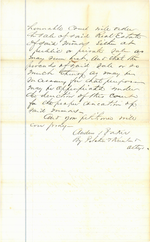 Honorable Court will order
the sale of said Real Estate
of said Minor either at
Public or private sale as
may seem best. And that the
proceeds of said Sale or so
much thereof as may be
necessary for that purpose
may be appropriated under
the direction of this Court
for the proper education of
said minors.
And your petitioner will
ever pray
By
Atty